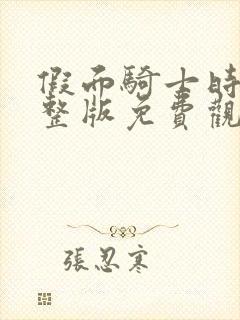 假面騎士時
整版免費觀
張忍寒